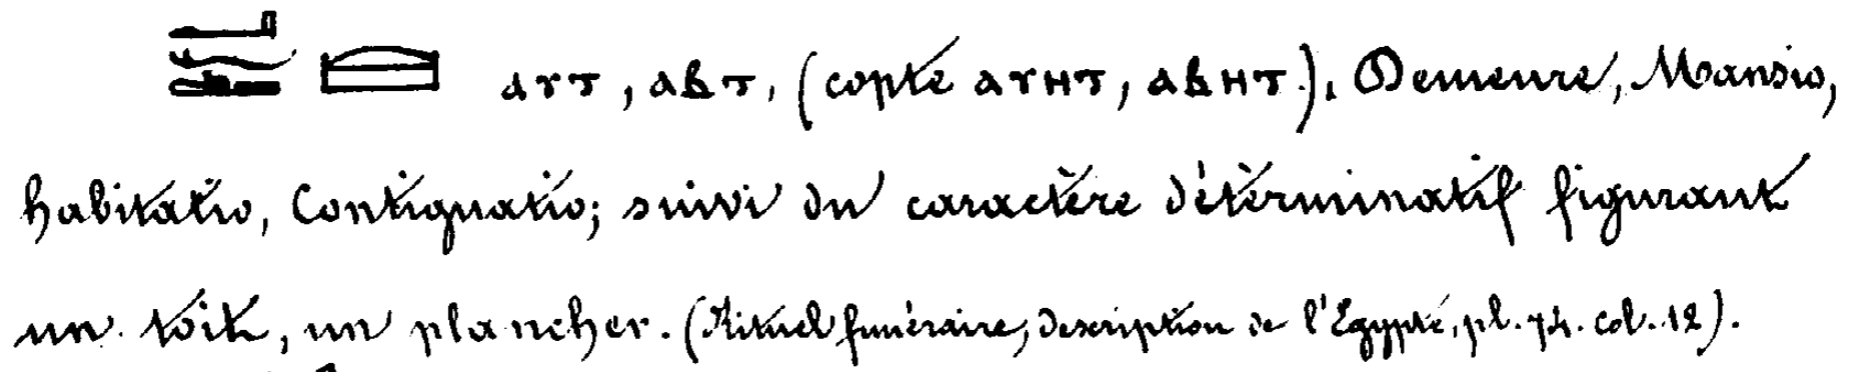 ⲁⲩⲧ, ⲁⲃⲧ, (copte ⲁⲩⲏⲧ, ⲁⲃⲏⲧ.), Demeure, Mansio,
habitatio, Contignatio; suivi du caractère détèrminatif figurant
un toit, un plancher. (Rituel funéraire, description de l'Egypte, pl. 74. col. 12).